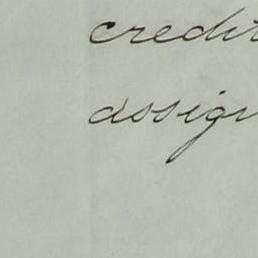 credit
assign